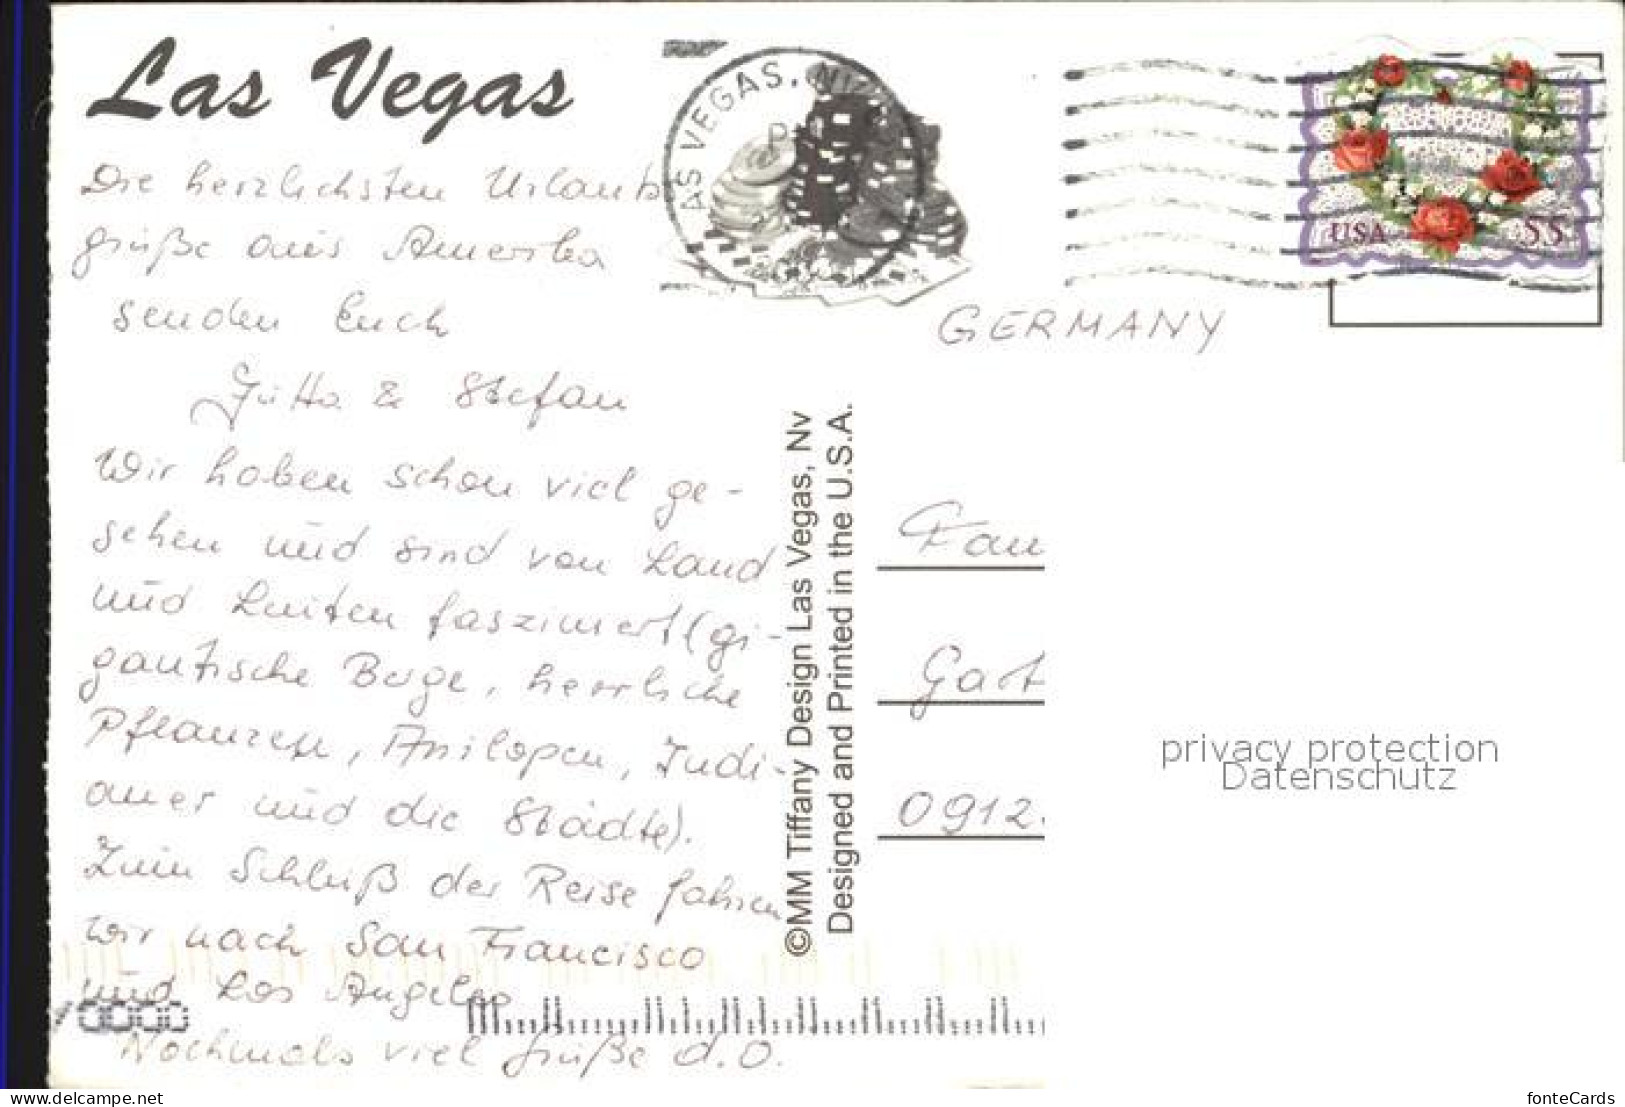 Las Vegas
Die herzlichsten Urlaubs
grüße aus Amerika
senden Euch
Jutta & Stefan
Wir haben schon viel ge-
sehen und sind von Land
und Leuten fasziniert (gi-
gantische Berge, herrliche
Pflanzen, Antilopen, Indi-
aner und die Städte).
Zum Schluß der Reise fahren
wir nach San Francisco
und Los Angeles
Nochmals viel Grüße d.O.
AS VEGAS, NV
P
USA 55
GERMANY
©MM Tiffany Design Las Vegas, Nv
Designed and Printed in the U.S.A.
Fam
Gart
0912
privacy protection
Datenschutz
www.delcampe.net
fonteCards